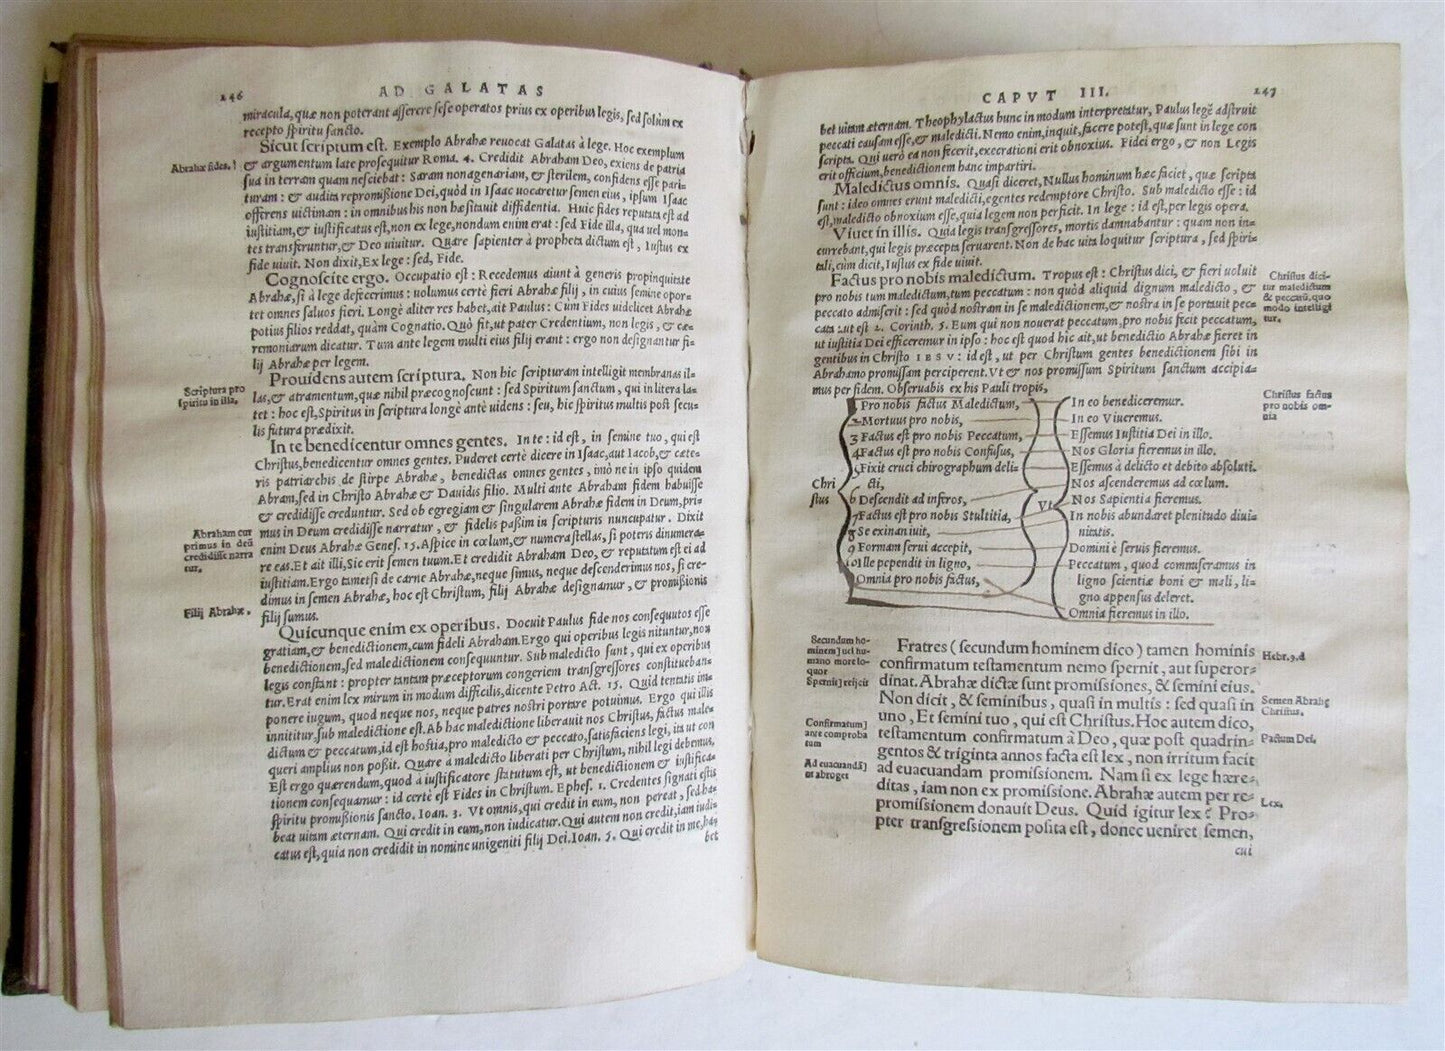 246
AD GALATAS
miracula, quæ non poterant asserere sese operatos prius ex operibus legis, sed solùm ex
recepto spiritu sancto.
Sicut scriptum est. Exemplo Abrahæ reuocat Galatas à lege. Hoc exemplum
Abrahæ fides.
& argumentum late prosequitur Roma. 4. Credidit Abraham Deo, exiens de patria
sua in terram quam nesciebat: Saram nonagenariam, & sterilem, confidens esse pari-
turam: & audita repromißione Dei, quòd in Isaac uocaretur semen eius, ipsum Isaac
offerens uictimam: in omnibus his non hæsitauit diffidentia. Huic fides reputata est ad
iustitiam, & iustificatus est, non ex lege, nondum enim erat: sed Fide illa, qua uel mon-
tes transferuntur, & Deo uiuitur. Quare sapienter à propheta dictum est, Iustus ex
fide uiuit. Non dixit, Ex lege: sed, Fide.
Cognoscite ergo. Occupatio est: Recedemus aiunt à generis propinquitate
Abrahæ, si à lege defecerimus: uolumus certè fieri Abrahæ filij, in cuius semine opor-
tet omnes saluos fieri. Longè aliter res habet, ait Paulus: Cum Fides uidelicet Abrahæ
potius filios reddat, quàm Cognatio. Quò fit, ut pater Credentium, non legis, & cæ-
remoniarum dicatur. Tum ante legem multi eius filij erant: ergo non designantur fi-
lij Abrahæ per legem.
Prouidens autem scriptura. Non hic scripturam intelligit membranas il-
Scriptura pro
spiritu in illa.
las, & atramentum, quæ nihil præcognoscunt: sed Spiritum sanctum, qui in litera la-
tet: hoc est, Spiritus in scriptura longè antè uidens: seu, hic spiritus multis post secu-
lis futura prædixit.
In te benedicentur omnes gentes. In te: id est, in semine tuo, qui est
Christus, benedicentur omnes gentes. Puderet certè dicere in Isaac, aut Iacob, & cæte-
ris patriarchis de stirpe Abrahæ, benedictas omnes gentes, imò ne in ipso quidem
Abram, sed in Christo Abrahæ & Dauidis filio. Multi ante Abraham fidem habuisse
& credidisse creduntur. Sed ob egregiam & singularem Abrahæ fidem in Deum, pri-
Abraham cur
primus in deū
credidisse narra
tur.
mus in Deum credidisse narratur, & fidelis paßim in scripturis nuncupatur. Dixit
enim Deus Abrahæ Genes. 15. Aspice in cœlum, & numera stellas, si poteris dinumera-
re eas. Et ait illi, Sic erit semen tuum. Et credidit Abraham Deo, & reputatum est ei ad
iustitiam. Ergo tametsi de carne Abrahæ, neque simus, neque descenderimus nos, si cre-
dimus in semen Abrahæ, hoc est Christum, filij Abrahæ designamur, & promißionis
Filij Abrahæ.
filij sumus.
Quicunque enim ex operibus. Docuit Paulus fide nos consequutos esse
gratiam, & benedictionem, cum fideli Abraham. Ergo qui operibus legis nituntur, non
benedictionem, sed maledictionem consequuntur. Sub maledicto sunt, qui ex operibus
legis constant: propter tantam præceptorum congeriem transgressores constitueban-
tur. Erat enim lex mirum in modum difficilis, dicente Petro Act. 15. Quid tentatis im-
ponere iugum, quod neque nos, neque patres nostri portare potuimus. Ergo qui illis
innititur, sub maledictione est. Ab hac maledictione liberauit nos Christus, factus male-
dictum & peccatum, id est hostia, pro maledicto & peccato, satisfaciens legi, ita ut con
queri amplius non poßit. Quare à maledicto liberati per Christum, nihil legi debemus.
Est ergo quærendum, quod à iustificatore statutum est, ut benedictionem & iustifica-
tionem consequamur: id certè est Fides in Christum. Ephes. 1. Credentes signati estis
spiritu promißionis sancto. Ioan. 3. Vt omnis, qui credit in eum, non pereat, sed ha-
beat uitam æternam. Qui credit in eum, non iudicatur. Qui autem non credit, iam iudi-
catus est, quia non credidit in nomine unigeniti filij Dei. Ioan. 5. Qui credit in me, ha-
bet
CAPVT III.
247
bet uitam æternam. Theophylactus hunc in modum interpretatur, Paulus legē adstruit
peccati causam esse, & maledicti. Nemo enim, inquit, facere potest, quæ sunt in lege con
scripta. Qui uerò ea non fecerit, execrationi erit obnoxius. Fidei ergo, & non Legis
erit officium, benedictionem hanc impartiri.
Maledictus omnis. Quasi diceret, Nullus hominum hæc faciet, quæ scripta
sunt: ideo omnes erunt maledicti, egentes redemptore Christo. Sub maledicto esse: id
est, maledicto obnoxium esse, quia legem non perficit. In lege: id est, per legis opera.
Viuet in illis. Quia legis transgressores, mortis damnabantur: quam non in-
currebant, qui legis præcepta seruarent. Non de hac uita loquitur scriptura, sed spiri-
tali, cùm dicit, Iustus ex fide uiuit.
Factus pro nobis maledictum. Tropus est: Christus dici, & fieri uoluit
Christus dici-
tur maledictum
& peccatū, quo
modo intelligi
tur.
pro nobis tum maledictum, tum peccatum: non quòd aliquid dignum maledicto, &
peccato admiserit: sed quòd nostram in se maledictionem, & nostra in se portauit pec-
cata: ut est 2. Corinth. 5. Eum qui non nouerat peccatum, pro nobis fecit peccatum,
ut iustitia Dei efficeremur in ipso: hoc est quod hic ait, ut benedictio Abrahæ fieret in
gentibus in Christo IESV: id est, ut per Christum gentes benedictionem sibi in
Abrahamo promissam perciperent. Vt & nos promissum Spiritum sanctum accipia-
mus per fidem. Obseruabis ex his Pauli tropis,
Christus factus
pro nobis om-
nia
Chri
stus
1 Pro nobis factus Maledictum,
2 Mortuus pro nobis,
3 Factus est pro nobis Peccatum,
4 Factus est pro nobis Confusus,
5 Fixit cruci chirographum deli-
cti,
6 Descendit ad inferos,
7 Factus est pro nobis Stultitia,
8 Se exinaniuit,
9 Formam serui accepit,
10 Ille pependit in ligno,
Omnia pro nobis factus,
Vt
In eo benediceremur.
In eo Viueremus.
Essemus Iustitia Dei in illo.
Nos Gloria fieremus in illo.
Essemus à delicto et debito absoluti.
Nos ascenderemus ad cœlum.
Nos Sapientia fieremus.
In nobis abundaret plenitudo diui-
nitatis.
Domini è seruis fieremus.
Peccatum, quod commiseramus in
ligno scientiæ boni & mali, li-
gno appensus deleret.
Omnia fieremus in illo.
Secundum ho-
minem] uel hu-
mano more lo-
quor
Spernit] reijcit
Confirmatum]
ante comproba
tum
Ad euacuandā]
ut abroget
Fratres (secundum hominem dico) tamen hominis
confirmatum testamentum nemo spernit, aut superor-
dinat. Abrahæ dictæ sunt promissiones, & semini eius.
Non dicit, & seminibus, quasi in multis: sed quasi in
uno, Et semini tuo, qui est Christus. Hoc autem dico,
testamentum confirmatum à Deo, quæ post quadrin-
gentos & triginta annos facta est lex, non irritum facit
ad euacuandam promissionem. Nam si ex lege hære-
ditas, iam non ex promissione. Abrahæ autem per re-
promissionem donauit Deus. Quid igitur lex? Pro-
pter transgressionem posita est, donec ueniret semen,
cui
Hebr. 9. d
Semen Abrahę
Christus.
Pactum Dei.
Lex.